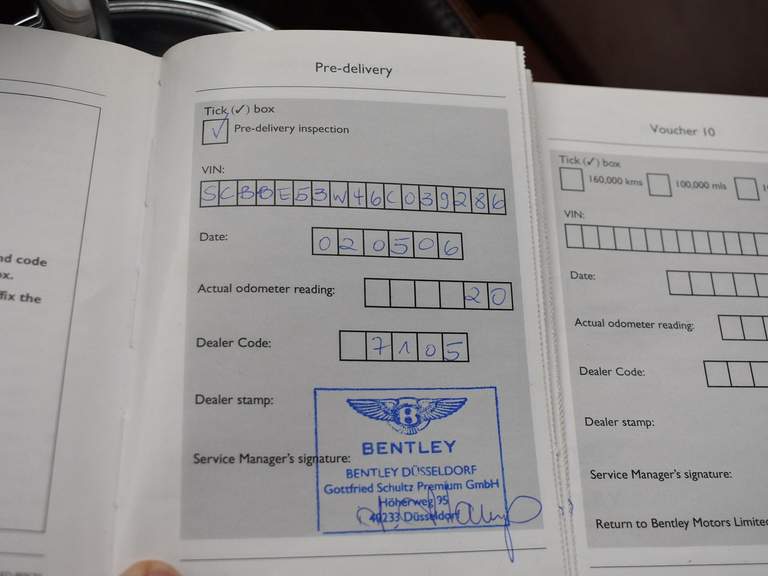 nd code
ox.
ffix the
Pre-delivery
Tick (✓) box
✓ Pre-delivery inspection
VIN:
SCBBE53W46C039286
Date:
020506
Actual odometer reading:
20
Dealer Code:
7105
Dealer stamp:
B
BENTLEY
BENTLEY DÜSSELDORF
Gottfried Schultz Premium GmbH
Höherweg 95
40233 Düsseldorf
Service Manager's signature:
Voucher 10
Tick (✓) box
160,000 kms
100,000 mls
VIN:
Date:
Actual odometer reading:
Dealer Code:
Dealer stamp:
Service Manager's signature:
Return to Bentley Motors Limite